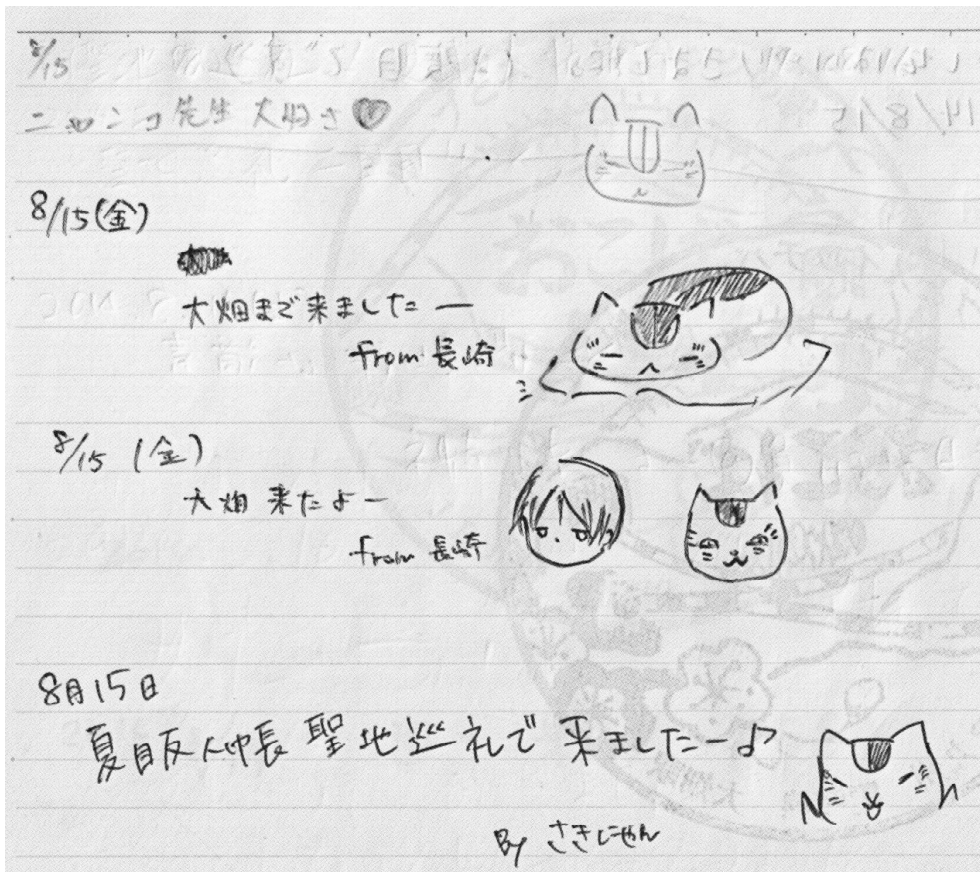 8/15
ニャンコ先生 大好き♥
8/15(金)
大畑まで来ましたー
from 長崎
8/15 (金)
大畑 来たよー
from 長崎
8月15日
夏目友人帳 聖地巡礼で 来ましたー♪
By さきにゃん